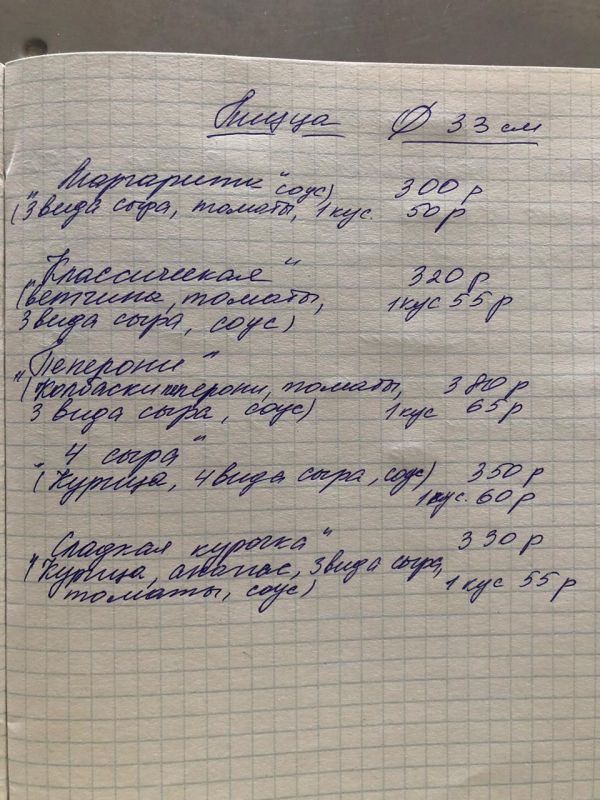 Пицца Ø 33 см
"Маргарита" соус) 300 р
(3 вида сыра, томаты, 1 кус. 50 р
"Классическая" 320 р
(ветчина, томаты, 1 кус 55 р
3 вида сыра, соус)
"Пеперони"
(колбаски пеперони, томаты, 380 р
3 вида сыра, соус) 1 кус 65 р
"4 сыра"
(Курица, 4 вида сыра, соус) 350 р
1 кус. 60 р
"Сладкая курочка" 330 р
(Курица, ананас, 3 вида сыра,
томаты, соус) 1 кус 55 р